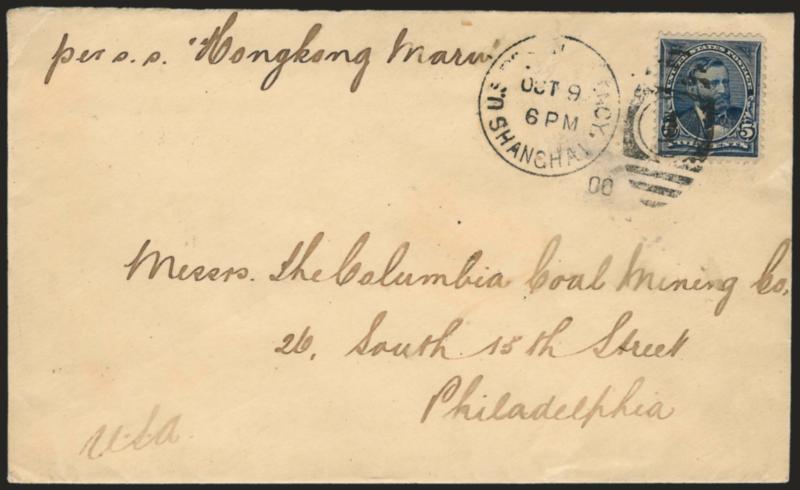 per s.s. "Hongkong Maru"
U.S. POSTAL AGENCY.
OCT 9
6 PM
SHANGHAI
00
UNITED STATES POSTAGE
5
FIVE CENTS
Messrs. The Columbia Coal Mining Co.
26, South 15th Street
Philadelphia
USA